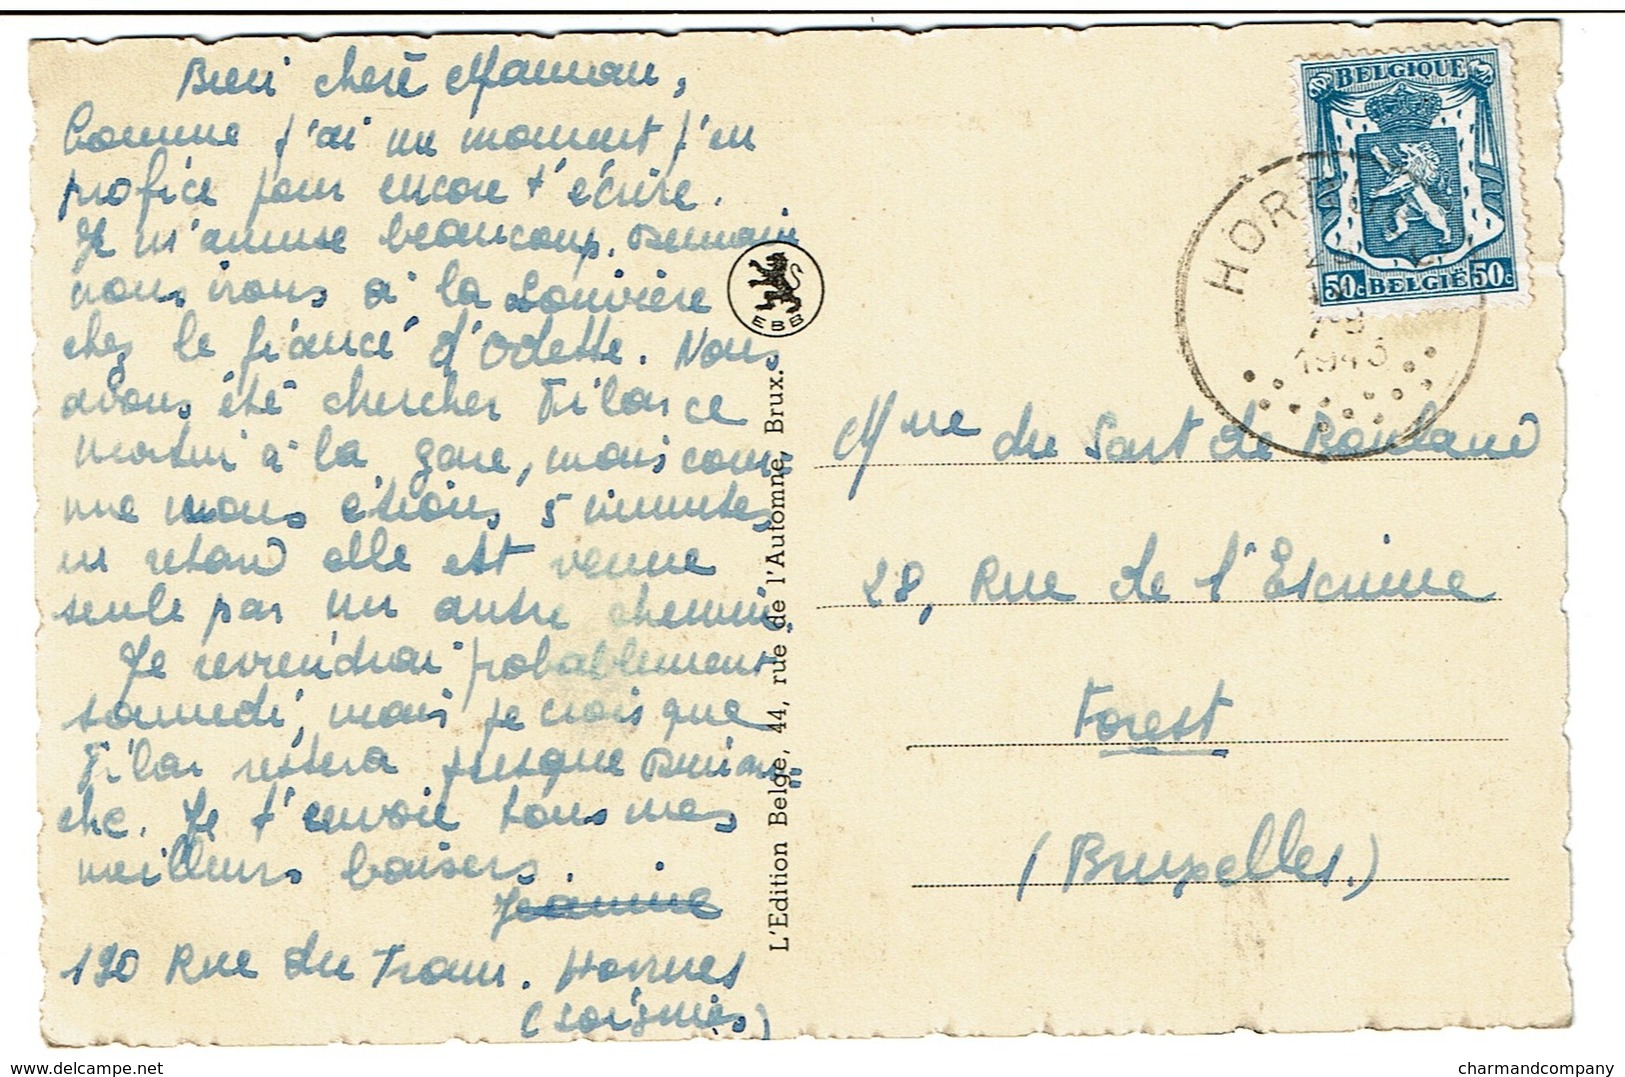 Bien chère Maman,
Comme j'ai un moment j'en
profice pour encore t'écrire.
Je m'amuse beaucoup. Demain
nous irons à la Louvière
chez le fiancé d'Odette. Nous
avons été chercher Pilar ce
matin à la gare, mais com
me nous étions 5 minutes
en retard elle est venue
seule par un autre chemin.
Je reviendrai probablement
samedi, mais je crois que
Pilar restera jusque Diman=
che. Je t'envoie tous mes
meilleurs baisers.
Jeannine
190 Rue du Tram. Horrues
(Soignies)
EBB
L'Edition Belge, 44, rue de l'Automne, Brux.
BELGIQUE
50c BELGIË 50c
1943
Mme du Sart de Bouland
28, Rue de l'Escrime
Forest
(Bruxelles.)
charmandcompany
delcampe.net